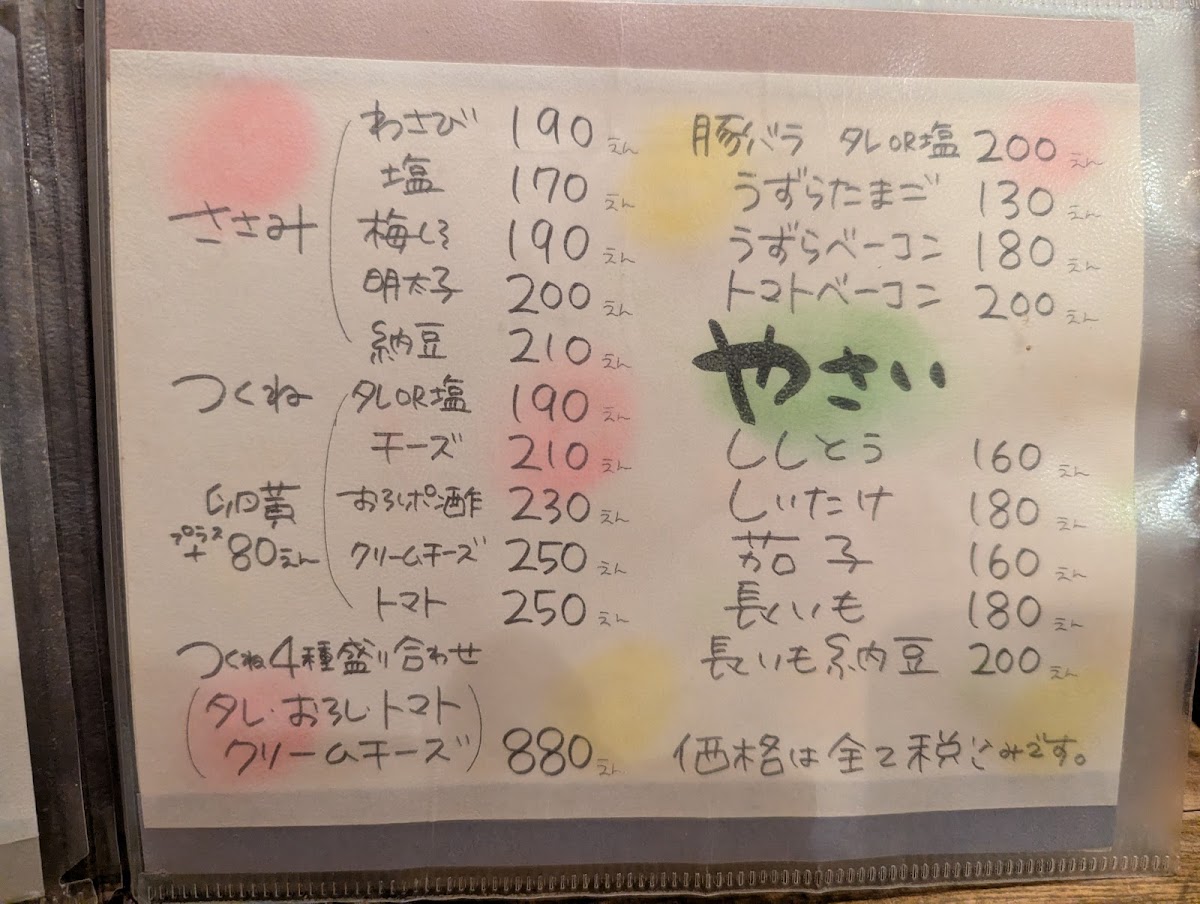 ささみ
わさび 190えん
塩 170えん
梅しそ 190えん
明太子 200えん
納豆 210えん
つくね
タレOR塩 190えん
チーズ 210えん
おろしポン酢 230えん
クリームチーズ 250えん
トマト 250えん
卵黄
プラス
+80えん
つくね4種盛り合わせ
(タレ・おろし・トマト
クリームチーズ) 880えん
豚バラ タレOR塩 200えん
うずらたまご 130えん
うずらベーコン 180えん
トマトベーコン 200えん
やさい
ししとう 160えん
しいたけ 180えん
茄子 160えん
長いも 180えん
長いも納豆 200えん
価格は全て税込みです。